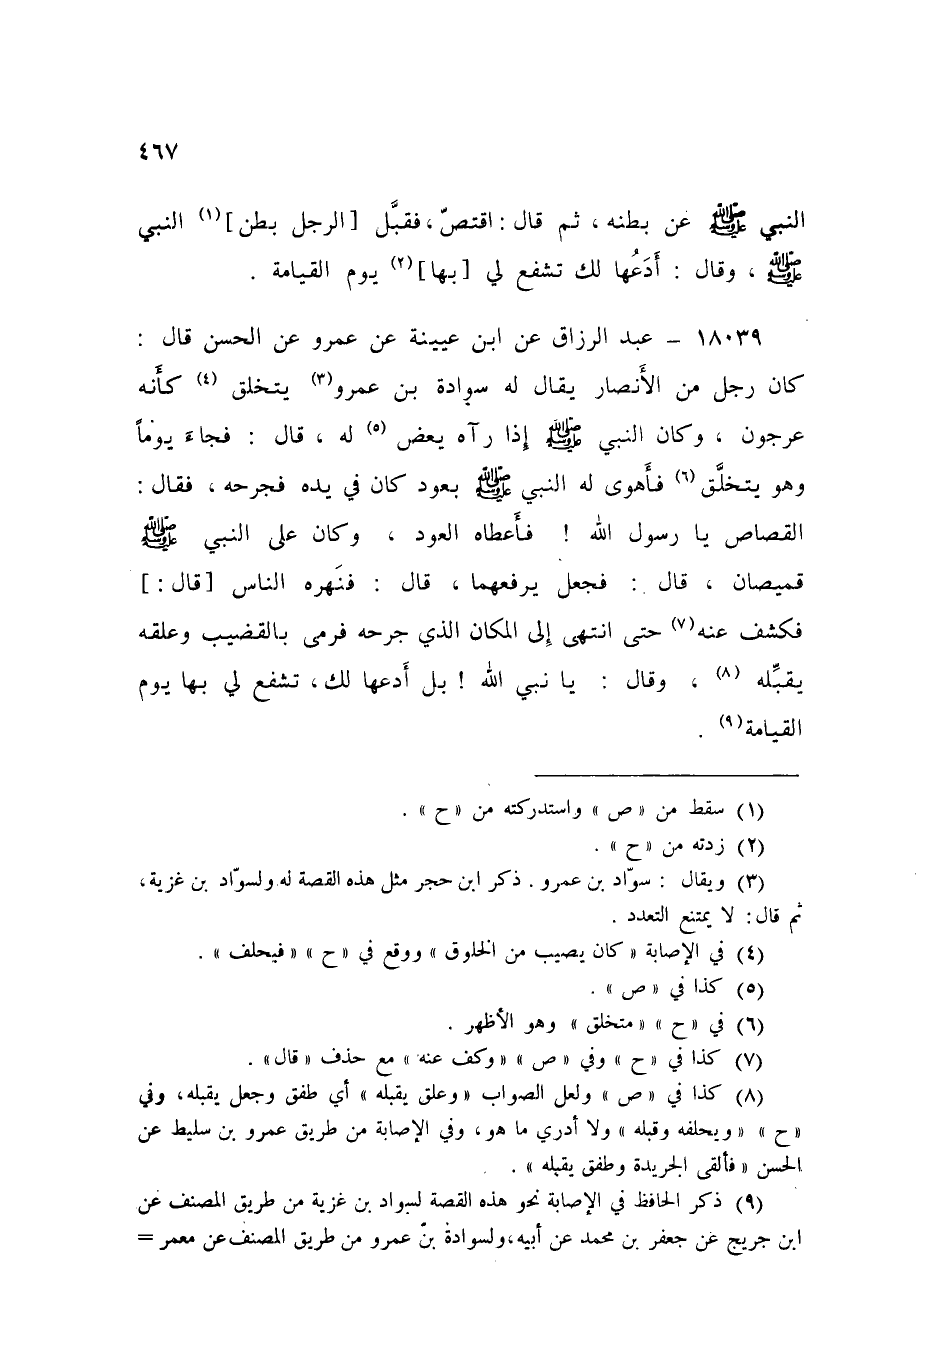 ٤٦٧
النبي ﷺ عن بطنه ، ثم قال : اقتصّ ، فقبَّل [ الرجل بطن ] (١) النبي
ﷺ ، وقال : أَدَعُها لك تشفع لي [ بها ] (٢) يوم القيامة .
١٨٠٣٩ – عبد الرزاق عن ابن عيينة عن عمرو عن الحسن قال :
كان رجل من الأَنصار يقال له سوادة بن عمرو (٣) يتخلق (٤) كأَنه
عرجون ، وكان النبي ﷺ إذا رآه يعض (٥) له ، قال : فجاءَ يوماً
وهو يتخلَّق (٦) فأَهوى له النبي ﷺ بعود كان في يده فجرحه ، فقال :
القصاص يا رسول الله ! فأَعطاه العود ، وكان على النبي ﷺ
قميصان ، قال : فجعل يرفعهما ، قال : فنَهره الناس [ قال : ]
فكشف عنه (٧) حتى انتهى إِلى المكان الذي جرحه فرمى بالقضيب وعلقه
يقبِّله (٨) ، وقال : يا نبي الله ! بل أَدعها لك ، تشفع لي بها يوم
القيامة (٩) .
(١) سقط من « ص » واستدركته من « ح » .
(٢) زدته من « ح » .
(٣) ويقال : سوّاد بن عمرو . ذكر ابن حجر مثل هذه القصة له ولسوّاد بن غزية ،
ثم قال : لا يمتنع التعدد .
(٤) في الإصابة « كان يصيب من الخلوق » ووقع في « ح » « فيحلف » .
(٥) كذا في « ص » .
(٦) في « ح » « متخلق » وهو الأظهر .
(٧) كذا في « ح » وفي « ص » « وكف عنه » مع حذف « قال » .
(٨) كذا في « ص » ولعل الصواب « وعلق يقبله » أي طفق وجعل يقبله ، وفي
« ح » « ويحلفه وقبله » ولا أدري ما هو ، وفي الإصابة من طريق عمرو بن سليط عن
الحسن « فألقى الجريدة وطفق يقبله » .
(٩) ذكر الحافظ في الإصابة نحو هذه القصة لسواد بن غزية من طريق المصنف عن
ابن جريج عن جعفر بن محمد عن أبيه ، ولسوادة بن عمرو من طريق المصنف عن معمر =